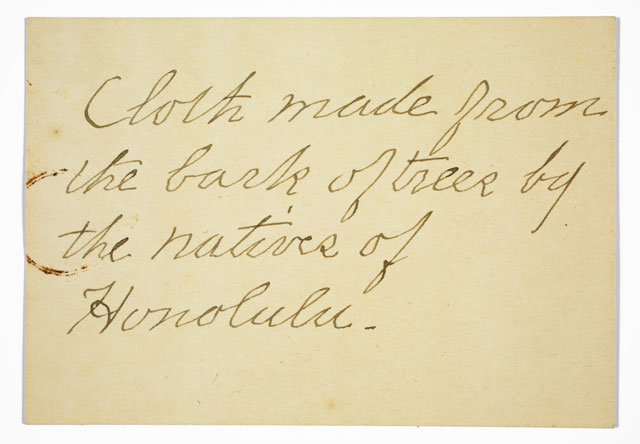 Cloth made from
the bark of trees by
the natives of
Honolulu.